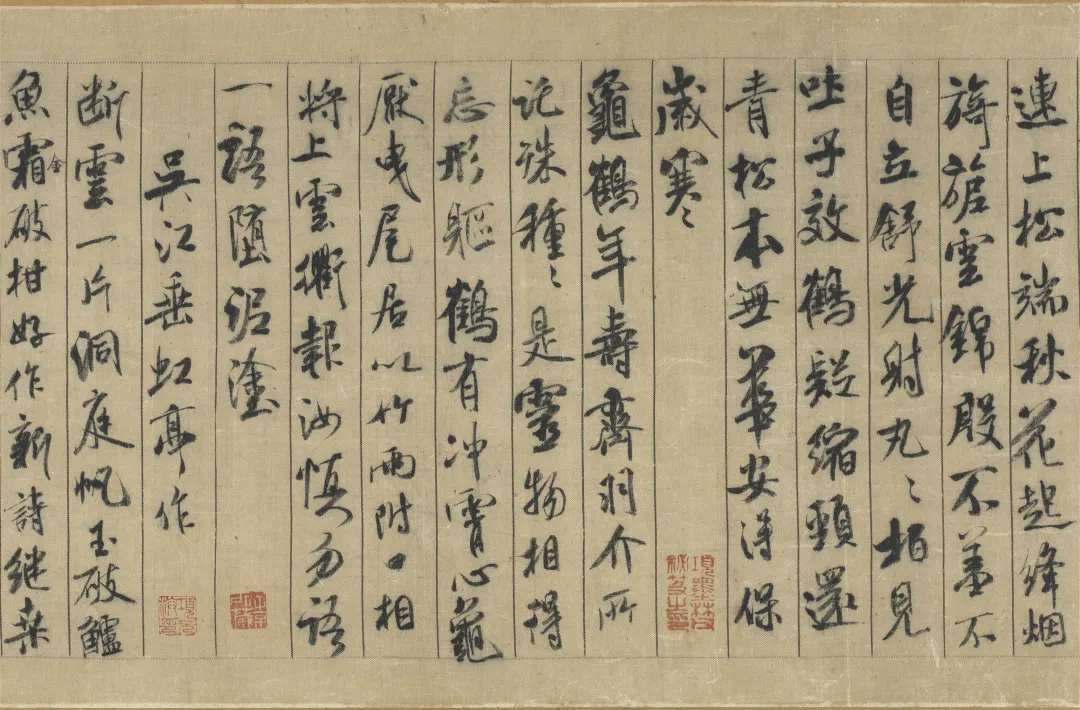 連上松端秋花起絳烟
旖旎雲錦殷不羞不
自立舒光射丸〻柏見
吐子效鶴疑縮頸還
青松本無華安得保
歲寒〻
項墨林父祕笈之印
龜鶴年壽齊羽介所
託殊種〻是靈物相得
忘形軀鶴有冲霄心龜
厭曳尾居以竹兩附口相
將上雲衢報汝慎勿語
一語墮泥塗
吳江垂虹亭作
断雲一片洞庭帆玉破鱸
魚霜金破柑好作新詩繼桑